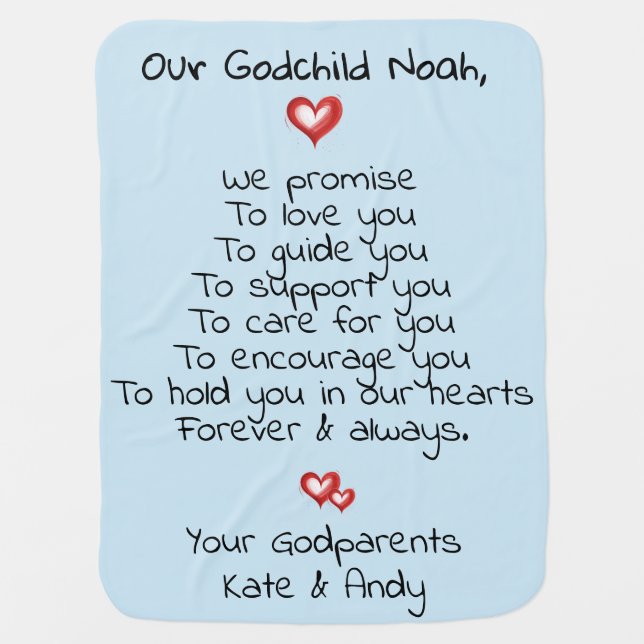 Our Godchild Noah,
We promise
To love you
To guide you
To support you
To care for you
To encourage you
To hold you in our hearts
Forever & always.
Your Godparents
Kate & Andy